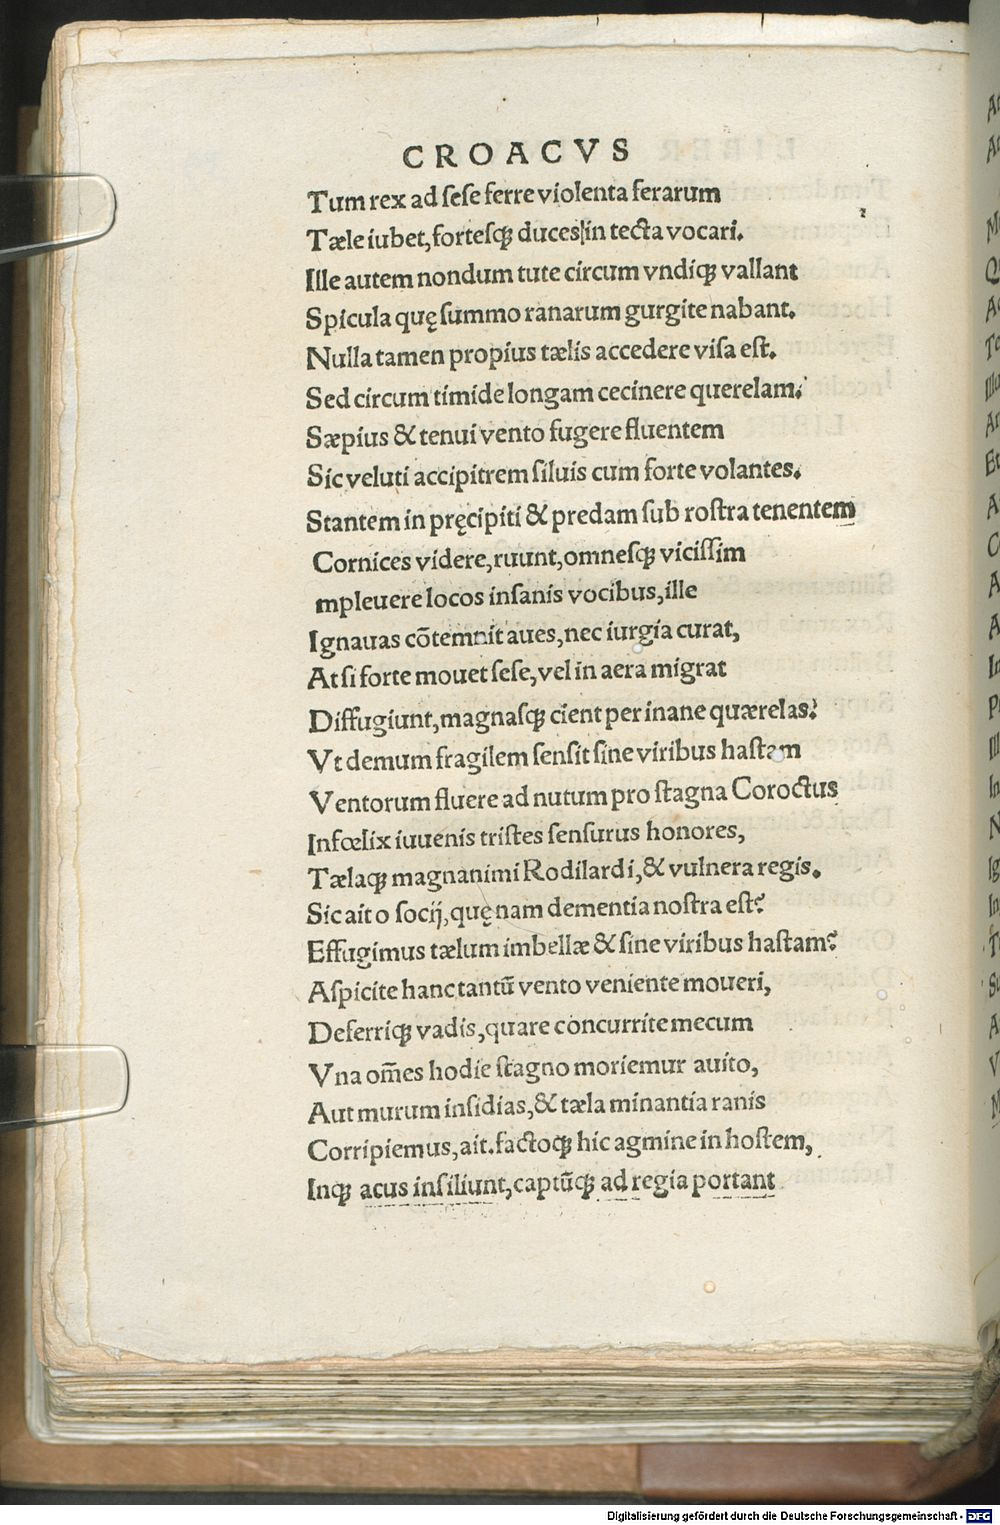 CROACVS
Tum rex ad sese ferre violenta ferarum
Tæle iubet, fortesqꝫ duces in tecta vocari.
Ille autem nondum tute circum vndiqꝫ vallant
Spicula quę summo ranarum gurgite nabant.
Nulla tamen propius tælis accedere visa est.
Sed circum timide longam cecinere querelam.
Sæpius & tenui vento fugere fluentem
Sic veluti accipitrem siluis cum forte volantes.
Stantem in pręcipiti & predam sub rostra tenentem
Cornices videre, ruunt, omnesqꝫ vicissim
mpleuere locos insanis vocibus, ille
Ignauas cõtemnit aues, nec iurgia curat,
At si forte mouet sese, vel in aera migrat
Diffugiunt, magnasqꝫ cient per inane quærelas?
Vt demum fragilem sensit sine viribus hastam
Ventorum fluere ad nutum pro stagna Coroctus
Infœlix iuuenis tristes sensurus honores,
Tælaqꝫ magnanimi Rodilardi, & vulnera regis.
Sic ait o socij, quę nam dementia nostra est?
Effugimus tælum imbellæ & sine viribus hastam?
Aspicite hanc tantũ vento veniente moueri,
Deferriqꝫ vadis, quare concurrite mecum
Vna om̃es hodie stagno moriemur auito,
Aut murum insidias, & tæla minantia ranis
Corripiemus, ait. factoqꝫ hic agmine in hostem,
Inqꝫ acus insiliunt, captũqꝫ ad regia portant
Digitalisierung gefördert durch die Deutsche Forschungsgemeinschaft - DFG